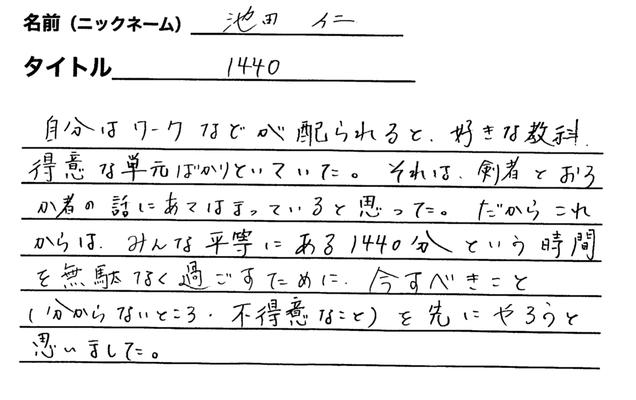 名前（ニックネーム） 池田 仁
タイトル 1440
自分はワークなどが配られると、好きな教科、
得意な単元ばかりといていた。それは、剣者とおろ
か者の話にあてはまっていると思った。だからこれ
からは、みんな平等にある1440分という時間
を無駄なく過ごすために、今すべきこと
(分からないところ・不得意なこと)を先にやろうと
思いました。